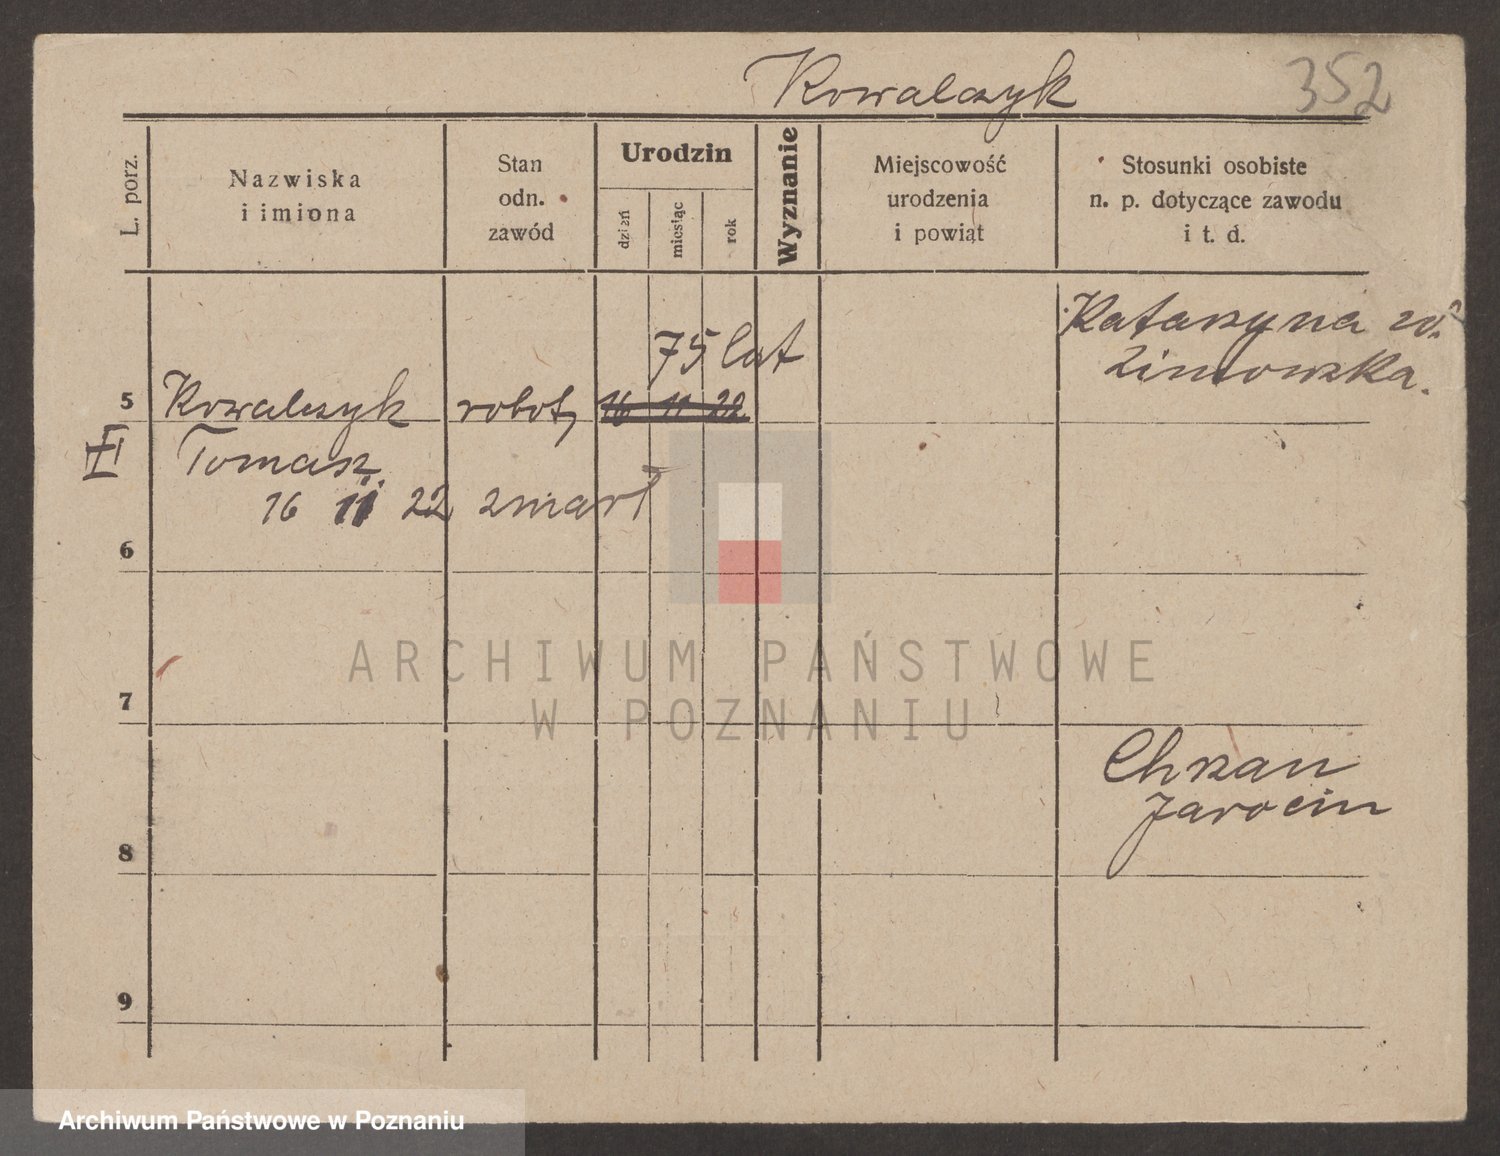 Kowalczyk 352
L. porz.
Nazwiska
i imiona
Stan
odn.
zawód
Urodzin
dzień
miesiąc
rok
Wyznanie
Miejscowość
urodzenia
i powiąt
Stosunki osobiste
n. p. dotyczące zawodu
i t. d.
Katarzyna
Zimowska.
75 lat
5 Kowalczyk robotn 16 11 22
II Tomasz
16 11 22 zmarł
6
7
Chrzan
Jarocin
8
9
ARCHIWUM PAŃSTWOWE
W POZNANIU
Archiwum Państwowe w Poznaniu